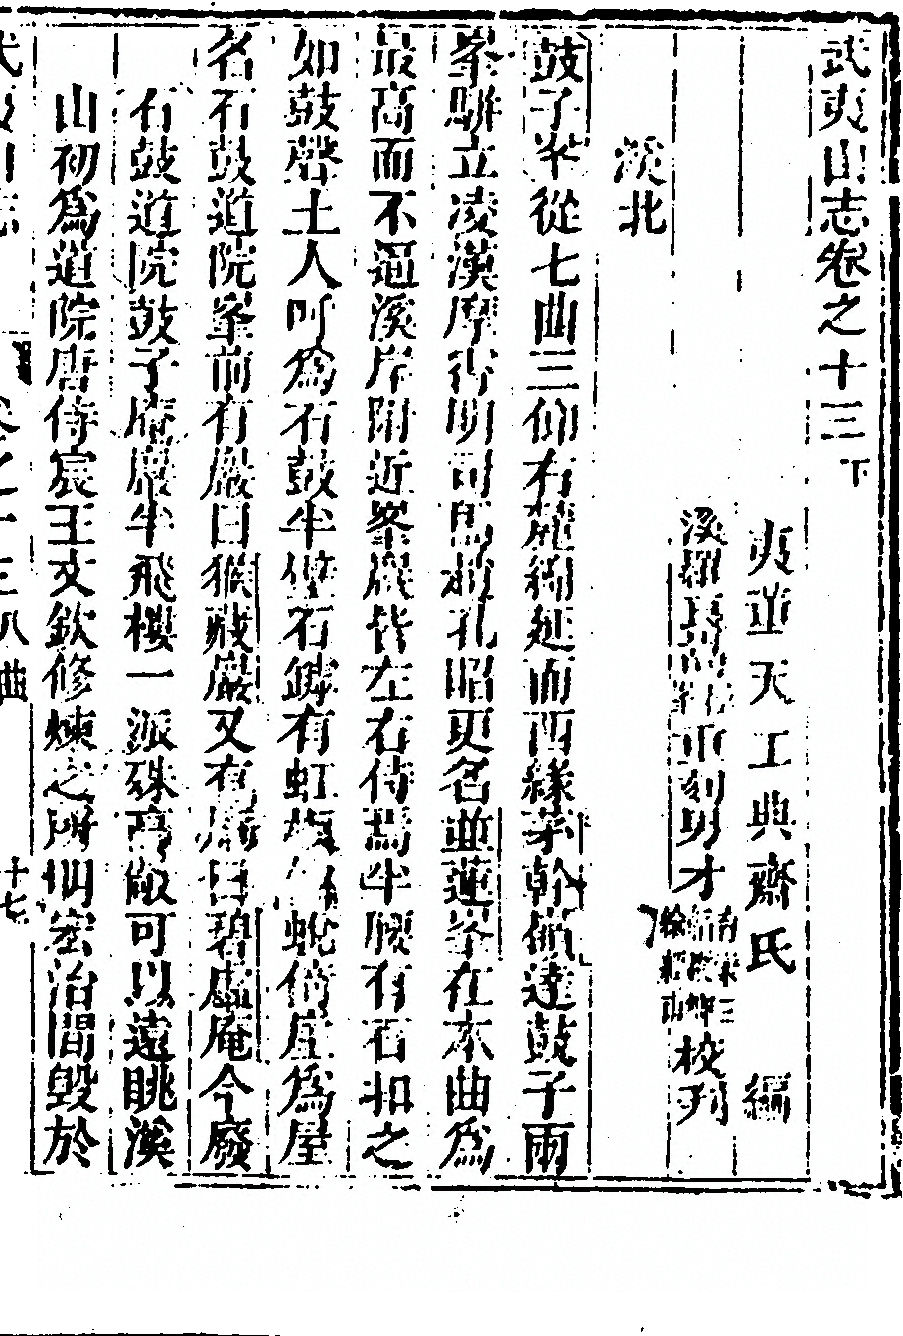 武夷山志卷之十三下
夷並天工典齋氏 編
溪羅 重刻男才 徐 山 校刋
溪北
鼓子峯從七曲三仰右麓綿延而西緣茶幹 達鼓子兩
峯駢立凌漢摩霄明司馬趙孔昭更名並蓮峯在本曲爲
最高而不逼溪岸附近峯巖皆左右侍焉半腰有石扣之
如鼓聲土人呼爲石鼓半壁石罅有虹 蛻倚崖爲屋
名石鼓道院峯前有巖曰猴藏巖又有 曰碧虛庵今廢
石鼓道院鼓子庵巖半飛樓一派殊高敞可以遠眺溪
山初爲道院唐侍宸王文欽修煉之所明宏治間毀於
卷之十三 八曲 十七